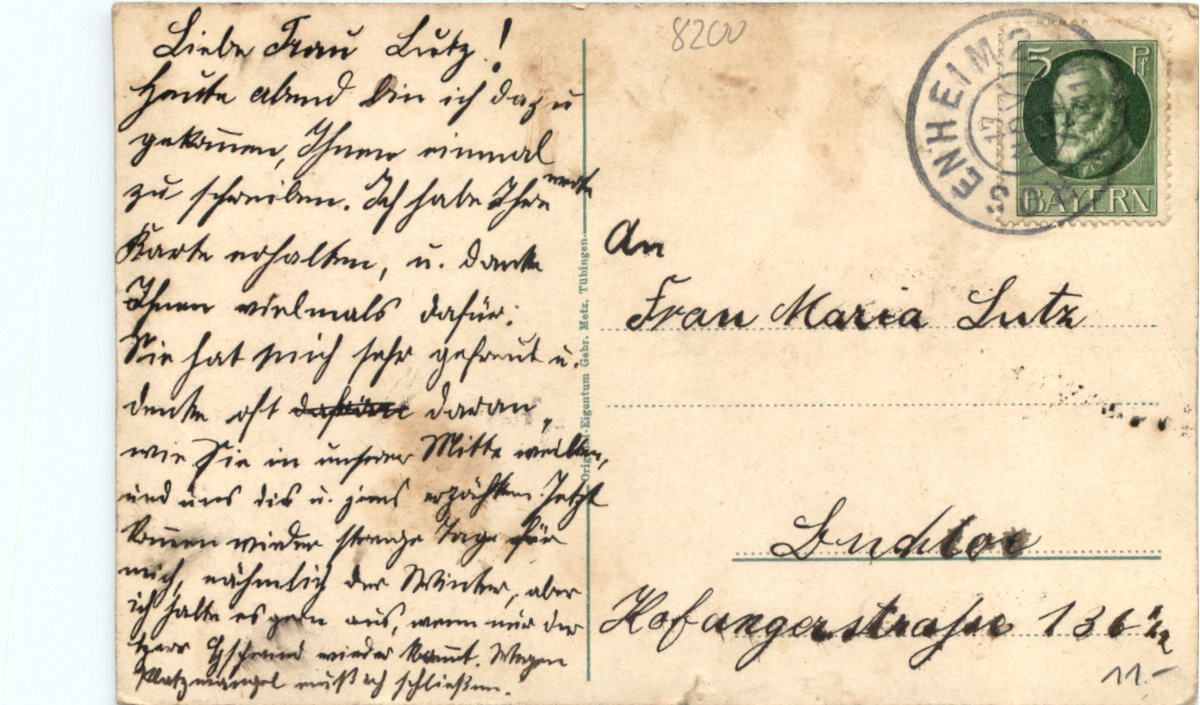 Liebe Frau Lutz!
Heute abend bin ich dazu
gekommen, Ihnen einmal
zu schreiben. Ich habe Ihre werte
Karte erhalten, u. danke
Ihnen vielmals dafür.
Sie hat mich sehr gefreut u.
denke oft daran,
wie Sie in unserer Mitte weilten,
und uns dis u. jenes erzählten. Jetzt
kommen wieder strenge Tage für
mich, nähmlich der Winter, aber
ich halte es gern aus, wenn nur der
wieder kommt. Wegen
Platzmangel muß ich schließen.
Original-Eigentum Gebr. Metz, Tübingen.
8200
SENHEIM
17
5 Pf
BAYERN
An
Frau Maria Lutz
Buchloe
Hofangerstraße 136 1/2
11.-